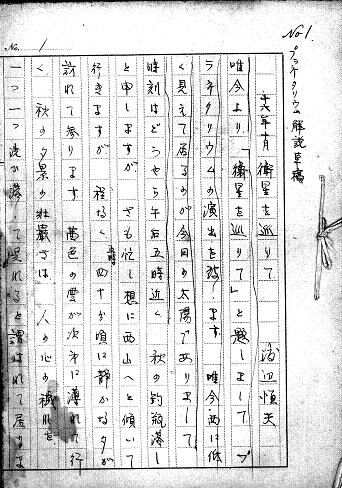 No 1.
プラネタリウム解説草稿
No. 1
十六年十月 衛星を巡りて
唯今より「衛星を巡りて」と題しまして プ
ラネタリウムの演出を致します 唯今西に低
く見えて居るのが今日の太陽でありまして
時刻はどうやら午后五時近く 秋の釣瓶落し
と申しますが さも忙し想に西山へと傾いて
行きますが 程なく 四十分頃に静かな夕が
訪れて参ります 茜色の雲が次第に薄れて行
く 秋の夕景の壮厳さは 人の心の穢れを
一つ一つ洗か落して呉れると謂はれて居りま